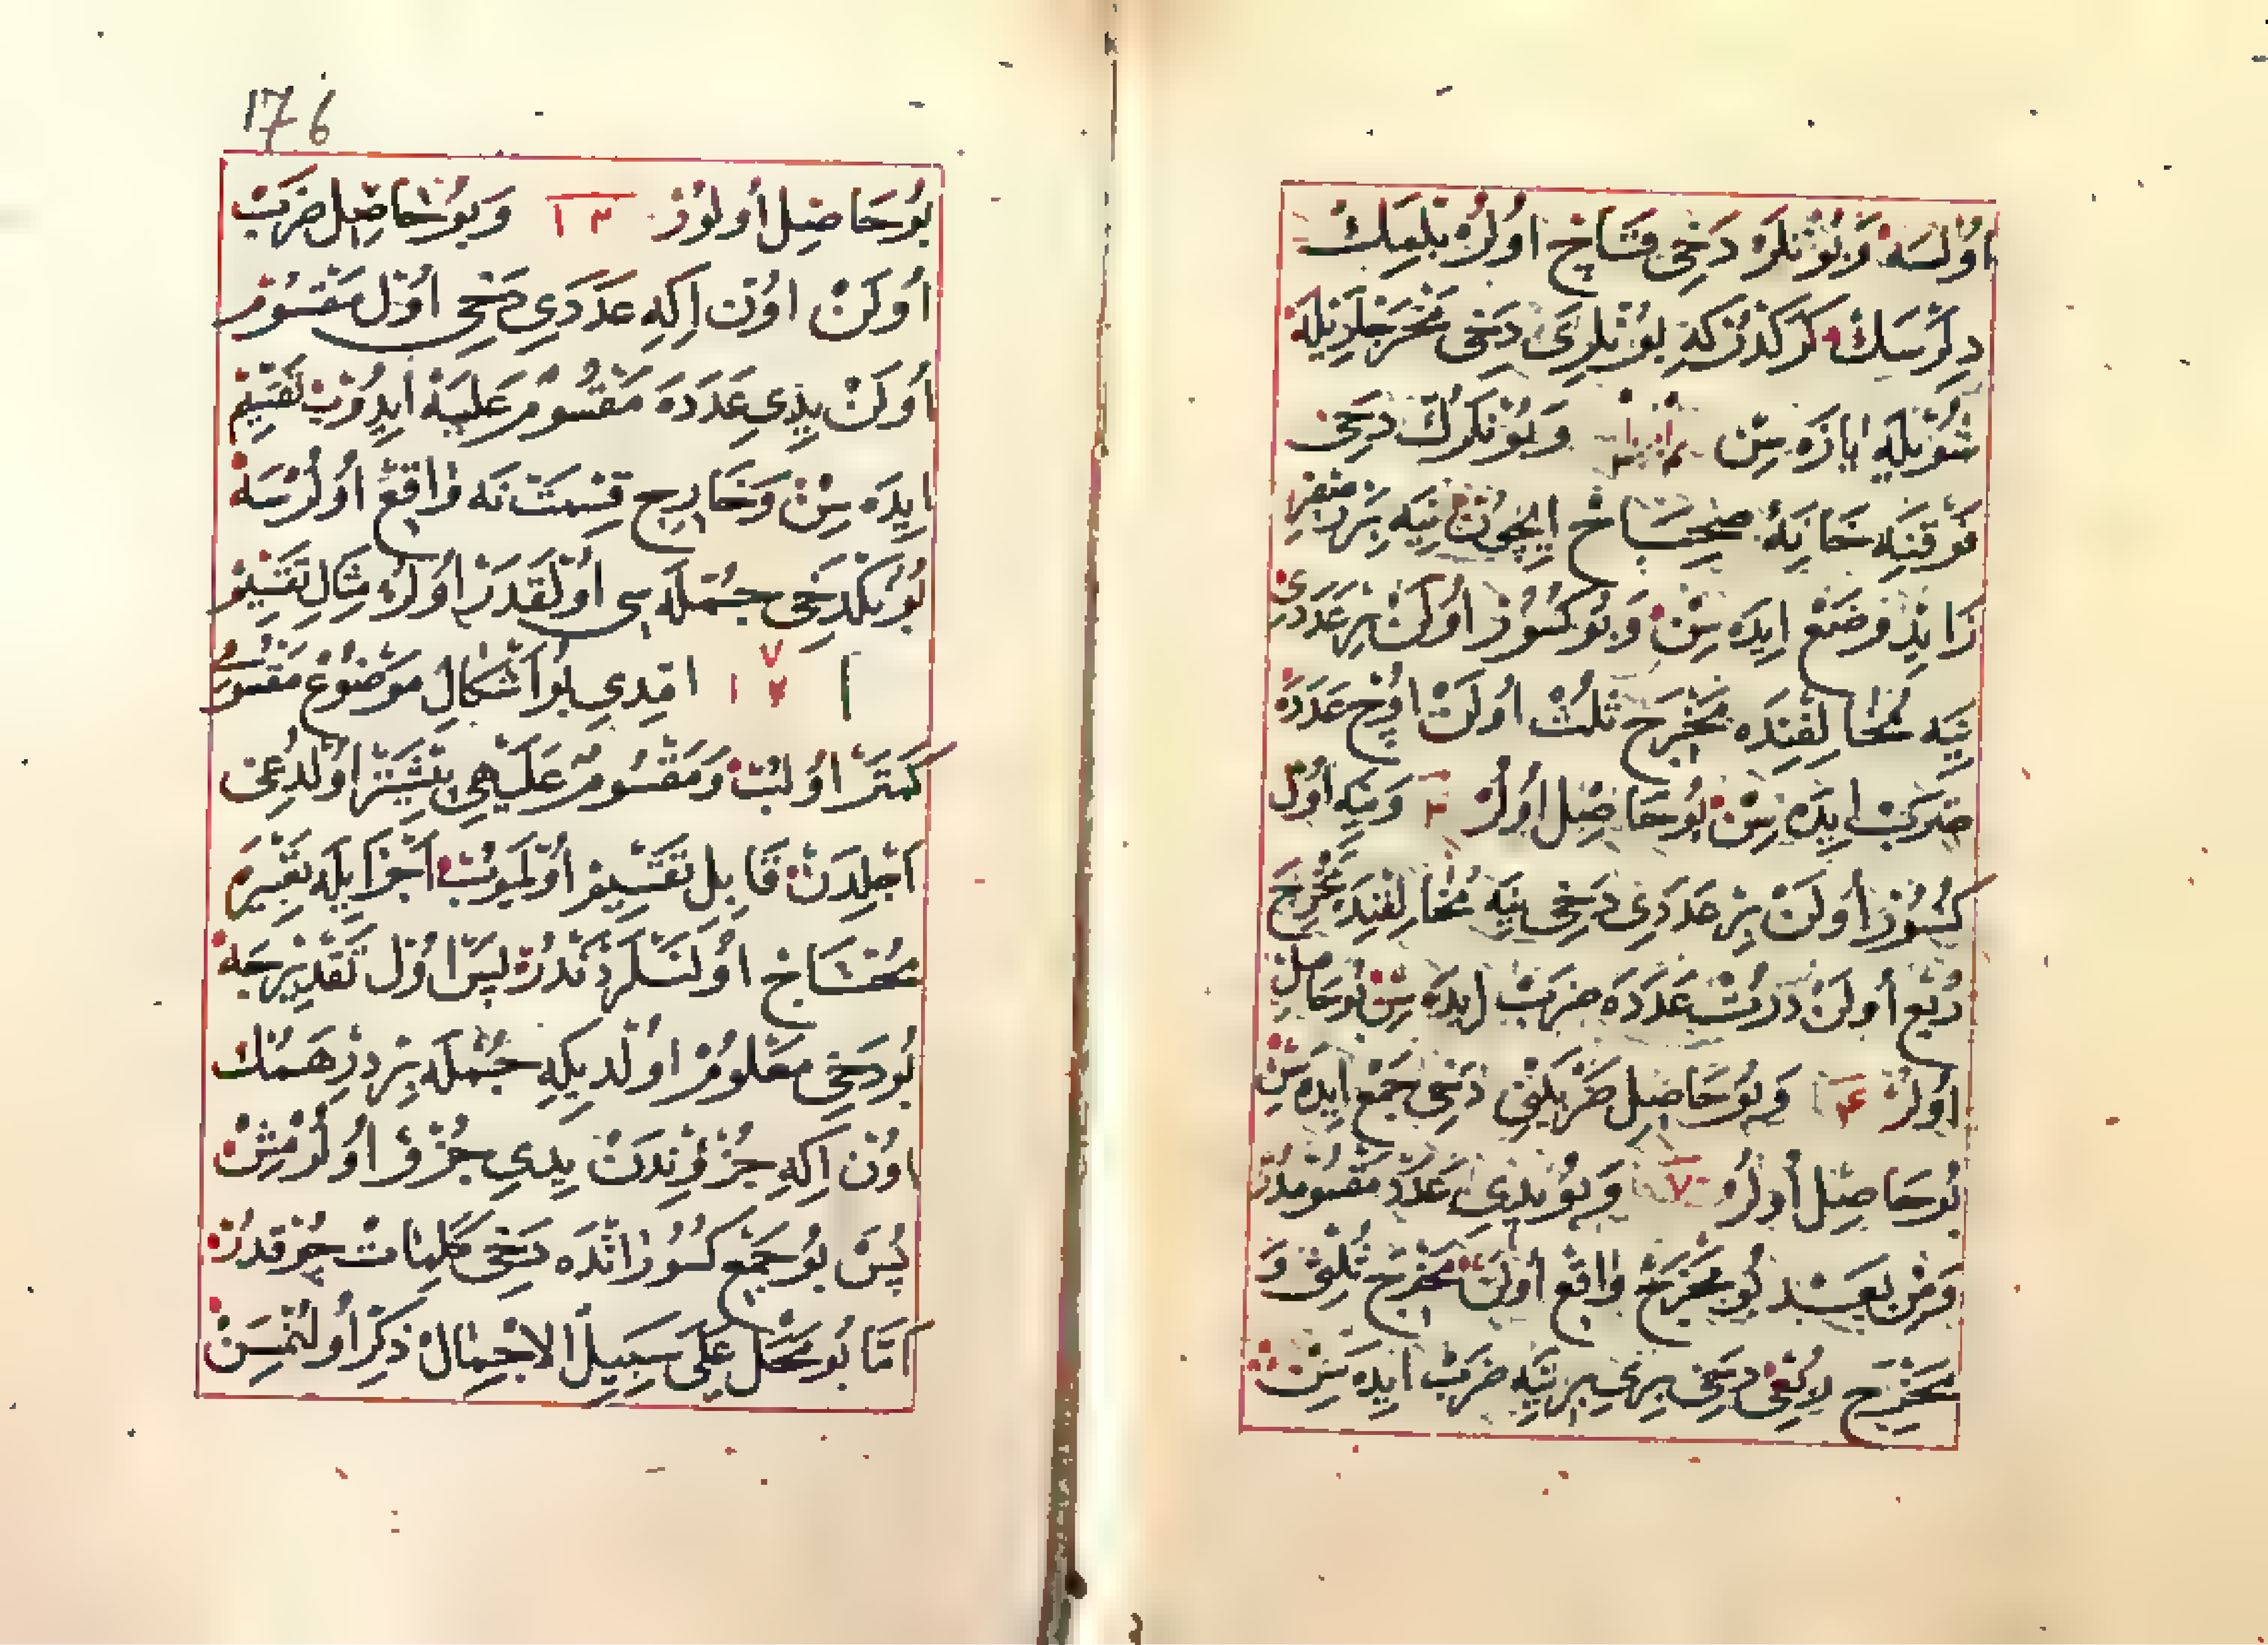 اُولسَه وَبُونلَره دَخِی اُولُر بِلمِك
دِلَرسَك كَركدُركه بُونلرِی دَخِی مَخرَجلَرِیله
شُویله یازَه سِن وَبُونلَرُك دَخِی
فَوقنِیه خَانِهٔ صِحَاح اِیچُون نِیه بِر صِفر
زَائِد وَضع اِیدَه سِن وَبُو كسُور اُولَن بِر عَدَدِی
نِیه مُخَالِفنِدَه مَخرَج ثُلُث اُولَن اُوچ عَدَدَه
ضَرب اِیدَه سِن بُو حَاصِل اُولُر ٣ وَینه اُول
كسُور اُولَن بِر عَدَدِی دَخِی نِیه مُخَالِفنِدَه مَخرَج
رُبع اُولَن دُرت عَدَدَه ضَرب اِیدَه سِن بُو حَاصِل
اُولُر ۴ وَبُو حَاصِل ضَربَینِی دَخِی جَمع اِیدَه سِن
بُو حَاصِل اُولُر ٧ وَبُو یدِی عَدَد مَقسُومدُر
وَمِن بَعد بُو مَخرَج وَاقع اُولَن مَخرَج ثُلثِی وَ
مَخرَج رُبعِی دَخِی بِرِی بِرنِیه ضَرب اِیدَه سِن
176
بُو حَاصِل اُولُور ١٢ وَبُو حَاصِل ضَرب
اُولَن اُون اِكِه عَدَدِی دَخِی اُول مَقسُوم
اُولَن یِدِی عَدَدَه مَقسُوم عَلَیه اِیدُوب تَقسِیم
اِیدَه سِن وَخَارِج قِسمَت نَه وَاقع اُولُرسَه
بُونُكدَخِی جُمله سِی اُولقَدَر اُولُر مِثَال تَقسِیم
٧ ١٢ اِمدِی بُو اَشكَالِ مَوضُوع مَقسُومِی
كمتَر اُولُب وَمَقسُوم عَلَیهِی بِیشتَر اُولدُغِی
اَجلِدَن قَابِل تَقسِیم اُولمیُوب اَجزَا یله تَعبِیرَه
مُحتَاج اُولنَلَردَندُر پَس اُول تَقدِیرجه
بُو دَخِی مَعلُوم اُولدِیكِه جُمله بِر دِرهَمُك
اُون اِكِه جُزؤُندَن یِدِی جُزؤ اُولُرمِش
پَس بُو جَمع كسُورَاتدَه دَخِی كَلِمَات چُوقدُر
اَمَّا بُو مَحَل عَلَی سَبِیل الاِجمَال ذِكر اُولنمِسَن